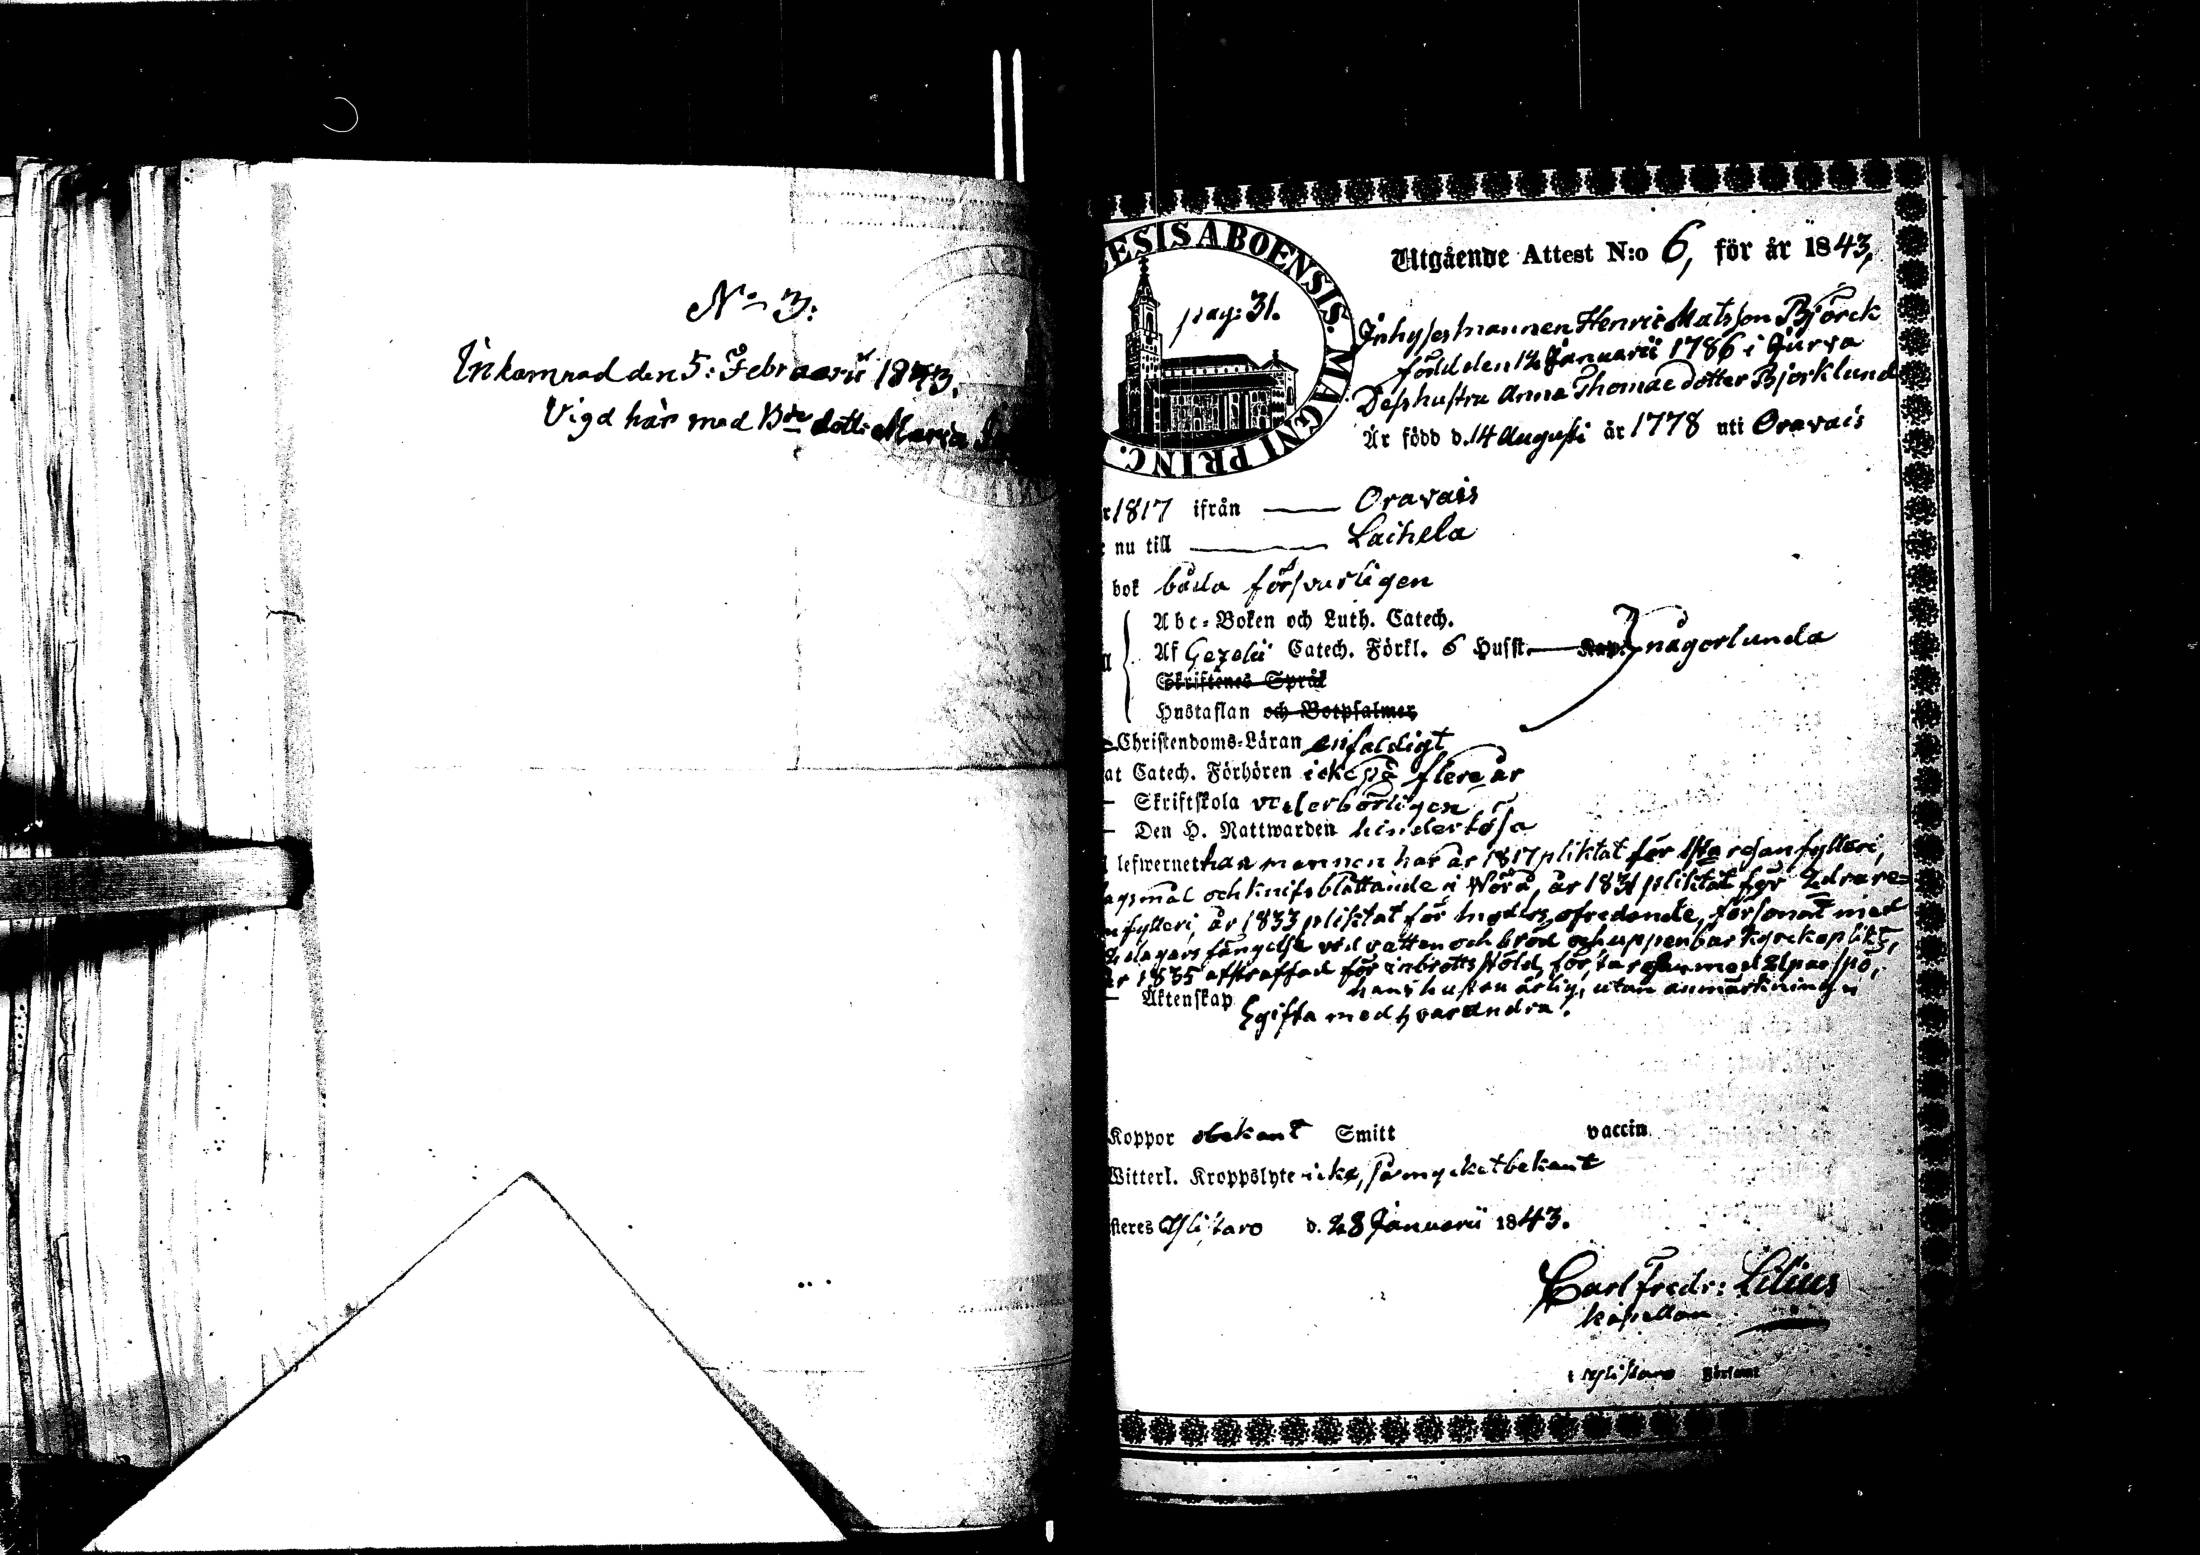 N:o 3:
Inkomnad den 5: Februarii 1843.
Vigd här med Bde dottr Maria
ESIS ABOENSIS. MAGNI PRINC.
pag: 31.
Utgående Attest N:o 6, för år 1843,
Inhysesmannen Henric Matsson Björck
född den 12 Januarii 1786 i Jurva
Dess hustru Anna Thomae dotter Björklund
Är född d. 14 Augusti år 1778 uti Oravais
r 1817 ifrån — Oravais
r nu till — Laihela
bok båda försvarligen
Abc-Boken och Luth. Catech.
Af Gezelii Catech. Förkl. 6 Hufst. — Kap. någorlunda
Skriftenes Språk
Hustaflan och Botpsalmer
Christendoms-Läran enfaldigt
at Catech. Förhören icke på flere år
— Skriftskola vederbörligen
— Den H. Nattwarden hinderlösa
lefwernet har mannen har år 1817 pliktat för 1sta resan fylleri,
agsmål och knifsblottande i Wörå, år 1831 pliktat för 2dra re-
n fylleri, år 1833 pliktat för ofredande, försonat med
dagars fängelse vid vatten och bröd och uppenbar kyrkoplikt,
år 1835 afstraffad för inbrotts stöld, för 1a resan med 21 par spö,
hans hustru ärlig, utan anmärkning
— Äktenskap gifta med hvarandra.
Koppor obekant Smitt vaccin.
Witterl. Kroppslyte icke, så mycket bekant
steres Ylistaro d. 28 Januarii 1843.
Carl Fredr: Lilius
kapellan
i Ylistaro Församl